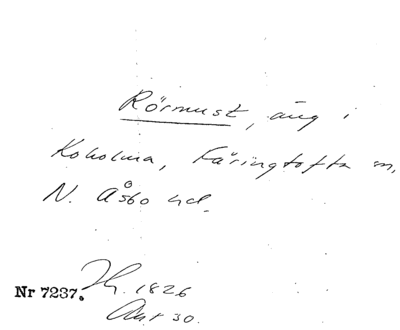 Rörmust, äng i
Koholma, Färingtofta sn,
N. Åsbo hd.
Nr 7237. Jh. 1826
Akt 30.